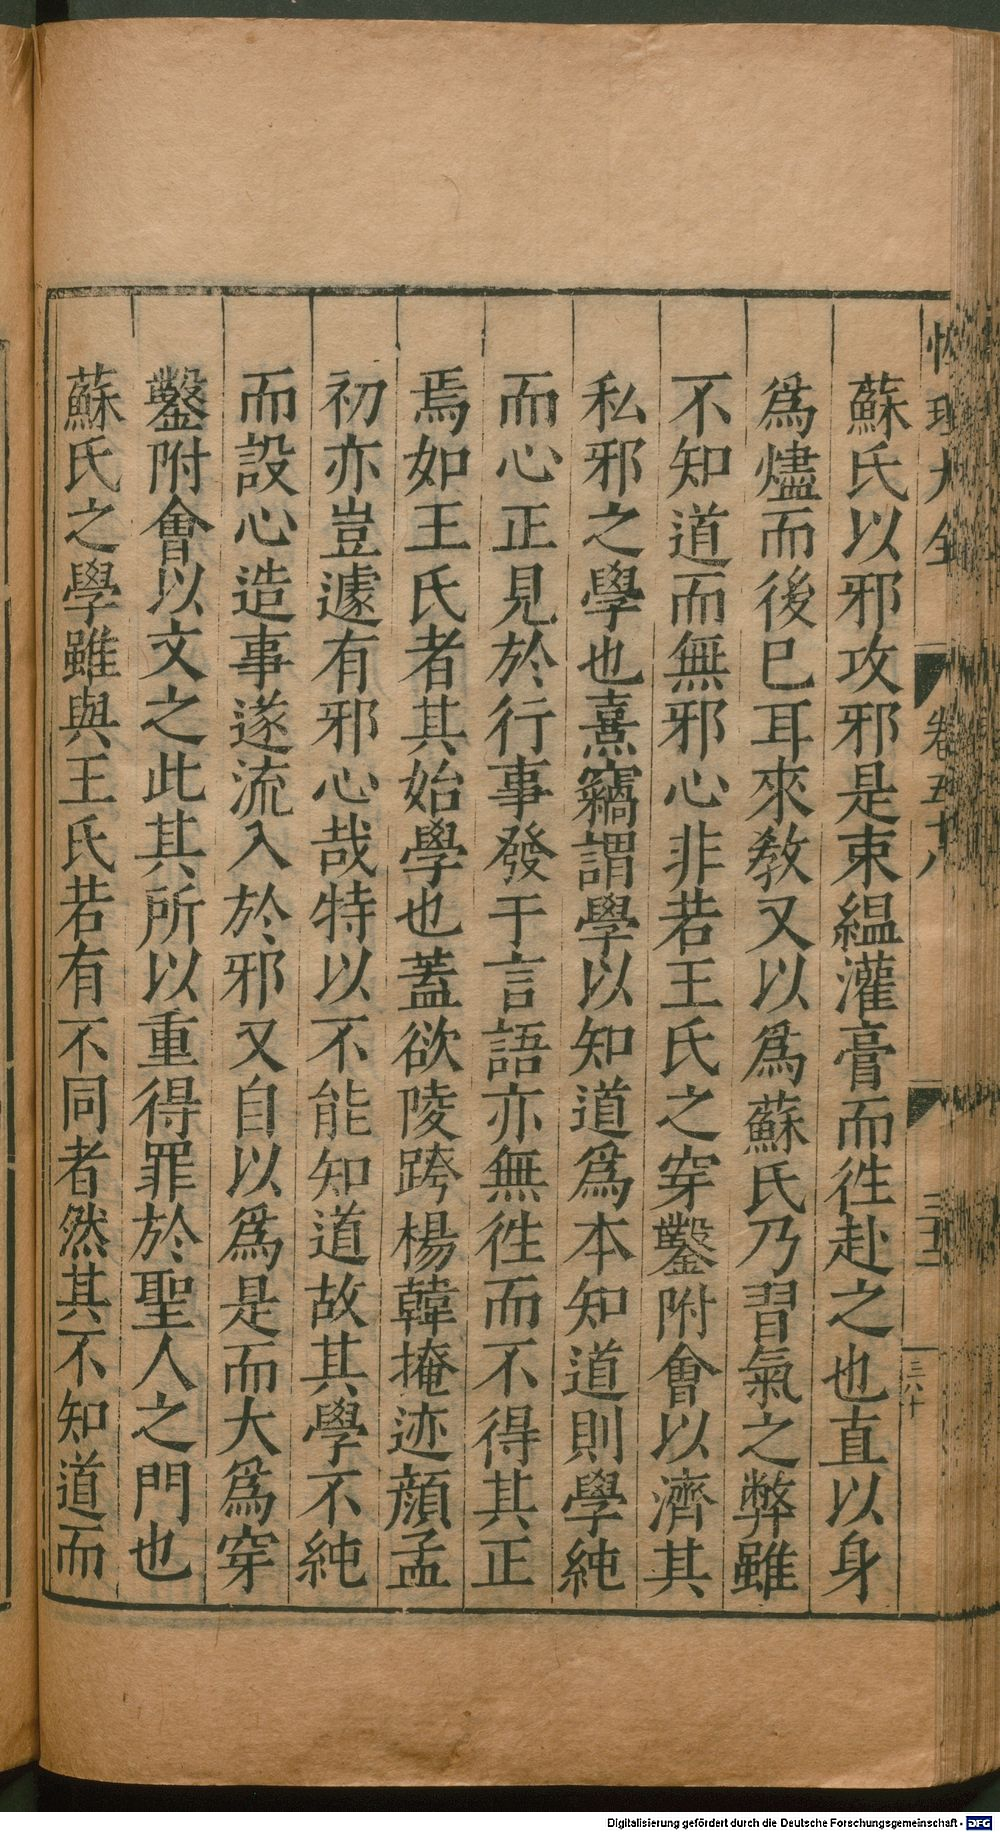 性理大全 卷五十八
三六十
蘇氏以邪攻邪是束緼灌膏而徃赴之也直以身
爲燼而後已耳來敎又以爲蘇氏乃習氣之弊雖
不知道而無邪心非若王氏之穿鑿附會以濟其
私邪之學也熹竊謂學以知道爲本知道則學純
而心正見於行事發于言語亦無徃而不得其正
焉如王氏者其始學也蓋欲陵跨楊韓掩迹顏孟
初亦豈遽有邪心哉特以不能知道故其學不純
而設心造事遂流入於邪又自以爲是而大爲穿
鑿附會以文之此其所以重得罪於聖人之門也
蘇氏之學雖與王氏若有不同者然其不知道而
Digitalisierung gefördert durch die Deutsche Forschungsgemeinschaft - DFG